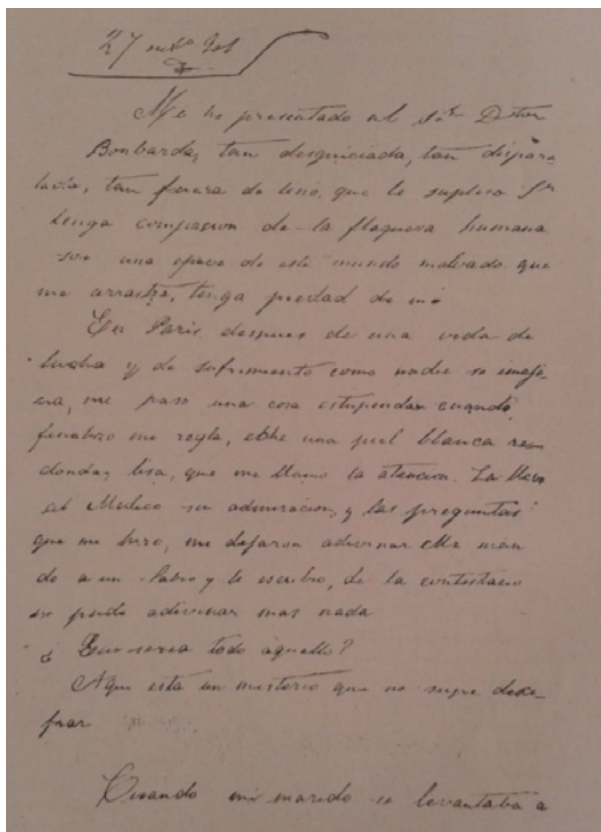 27
Me he presentado al Dtor
Bonbarda, tan desquiciada, tan dispara
tada, tan fuera de que le suplico
tenga compasion de la flaquesa humana
soy una de este mundo malvado que
me arrastra, tenga piedad de mi
En Paris, despues de una vida de
lucha y de sufrimiento como nadie se imaji
na, me paso una cosa estupenda cuando
finalizo mi regla, eché una piel blanca re
donda, lisa, que me llamo la atencion. La lleve
al Medico su admiracion, y las preguntas
que me hizo, me dejaron adivinar Me man
do a un Sabio y le escribio, de la contestacio
no pude adivinar mas nada
¿ Que seria todo aquello?
Aqui está un misterio que no supe desci-
frar
Cuando mi marido se levantaba a